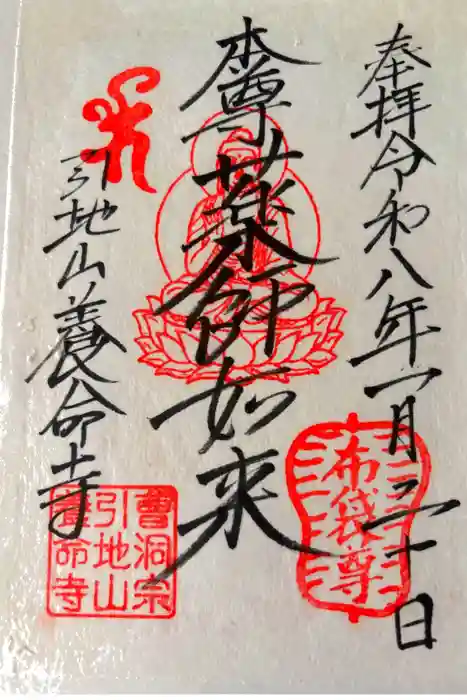 奉拝令和八年一月三十日
布袋尊
本尊薬師如来
引地山養命寺
曹洞宗
引地山
養命寺